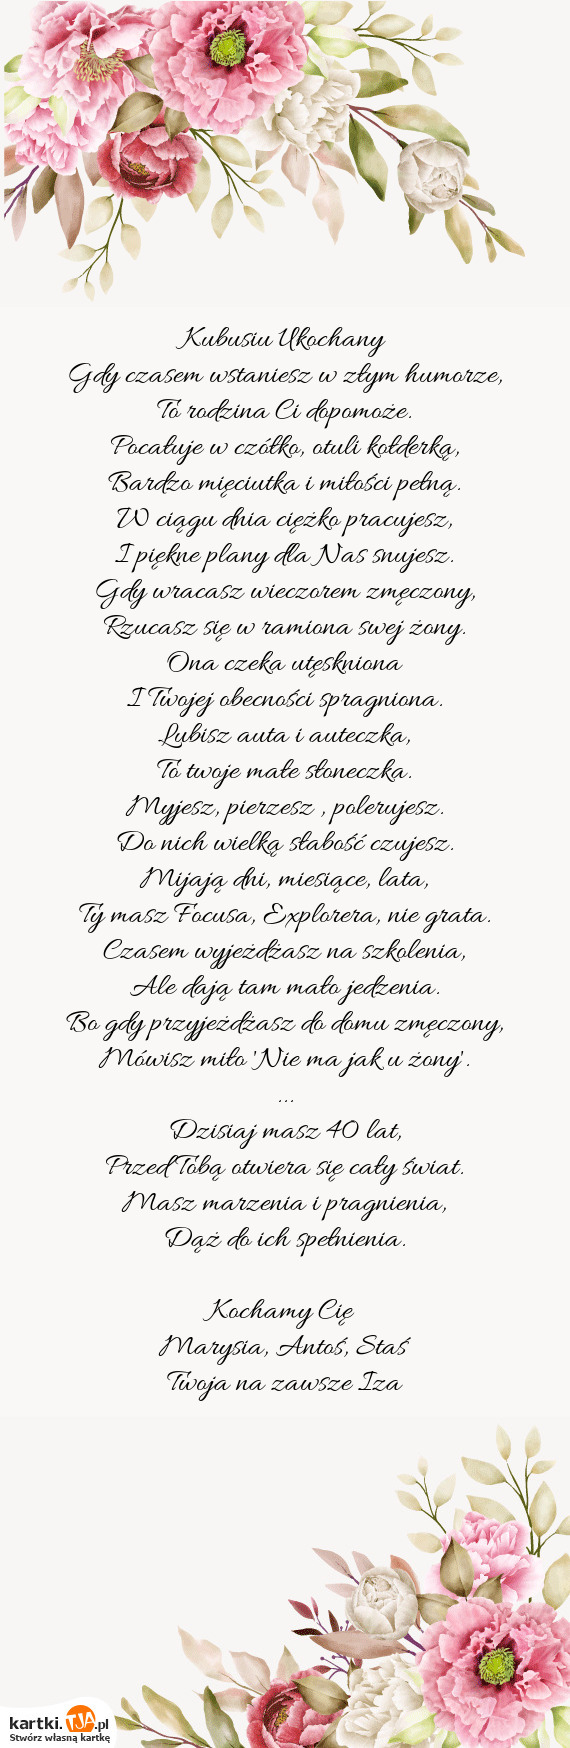 Kubusiu Ukochany
Gdy czasem wstaniesz w złym humorze,
To rodzina Ci dopomoże.
Pocałuje w czółko, otuli kołderką,
Bardzo mięciutka i miłości pełną.
W ciągu dnia ciężko pracujesz,
I piękne plany dla Nas snujesz.
Gdy wracasz wieczorem zmęczony,
Rzucasz się w ramiona swej żony.
Ona czeka utęskniona
I Twojej obecności spragniona.
Lubisz auta i auteczka,
To twoje małe słoneczka.
Myjesz, pierzesz , polerujesz.
Do nich wielką słabość czujesz.
Mijają dni, miesiące, lata,
Ty masz Focusa, Explorera, nie grata.
Czasem wyjeżdżasz na szkolenia,
Ale dają tam mało jedzenia.
Bo gdy przyjeżdżasz do domu zmęczony,
Mówisz miło 'Nie ma jak u żony'.
...
Dzisiaj masz 40 lat,
Przed Tobą otwiera się cały świat.
Masz marzenia i pragnienia,
Dąż do ich spełnienia.
Kochamy Cię
Marysia, Antoś, Staś
Twoja na zawsze Iza
kartki.TJA.pl
Stwórz własną kartkę